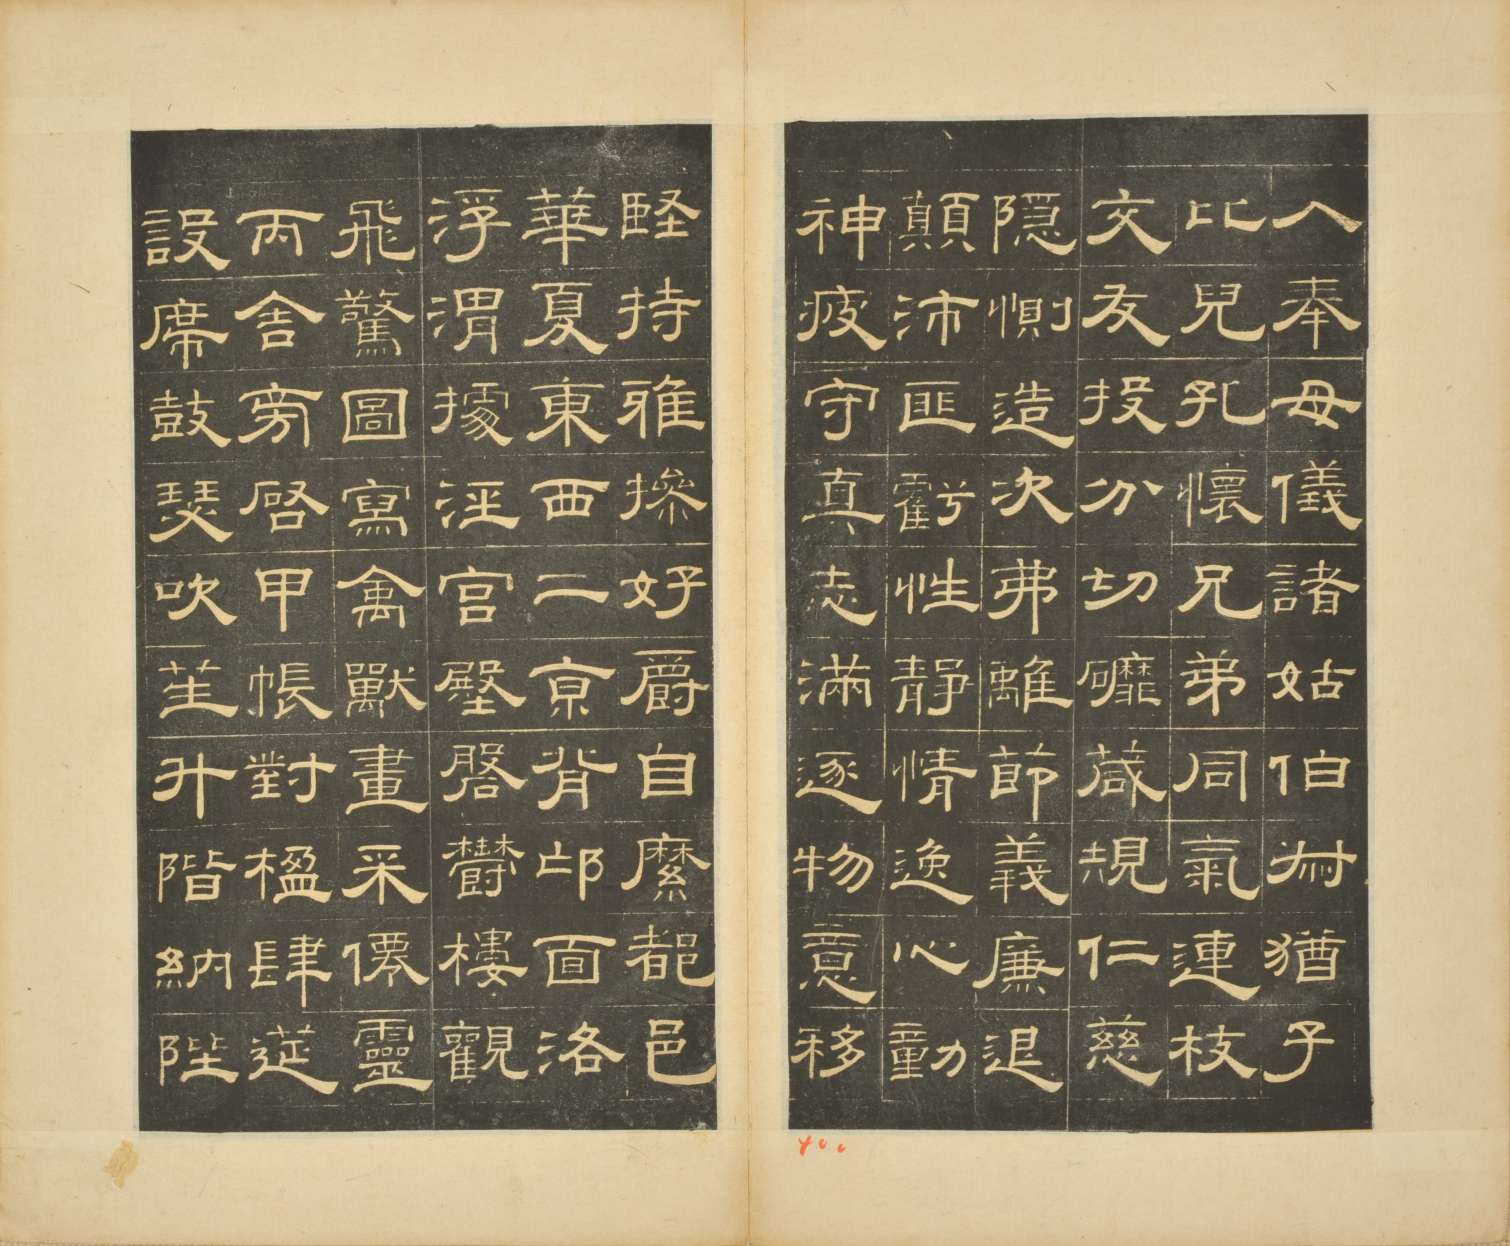 入奉母儀諸姑伯叔猶子
比兒孔懷兄弟同氣連枝
交友投分切䃺葴規仁慈
隱惻造次弗離節義廉退
顛沛匪虧性靜情逸心動
神疲守真志滿逐物意移
堅持雅操好爵自縻都邑
華夏東西二京背邙面洛
浮渭據涇宮殿盤鬱樓觀
飛驚圖寫禽獸畫采僊靈
丙舍旁啓甲帳對楹肆筵
設席鼓瑟吹笙升階納陛